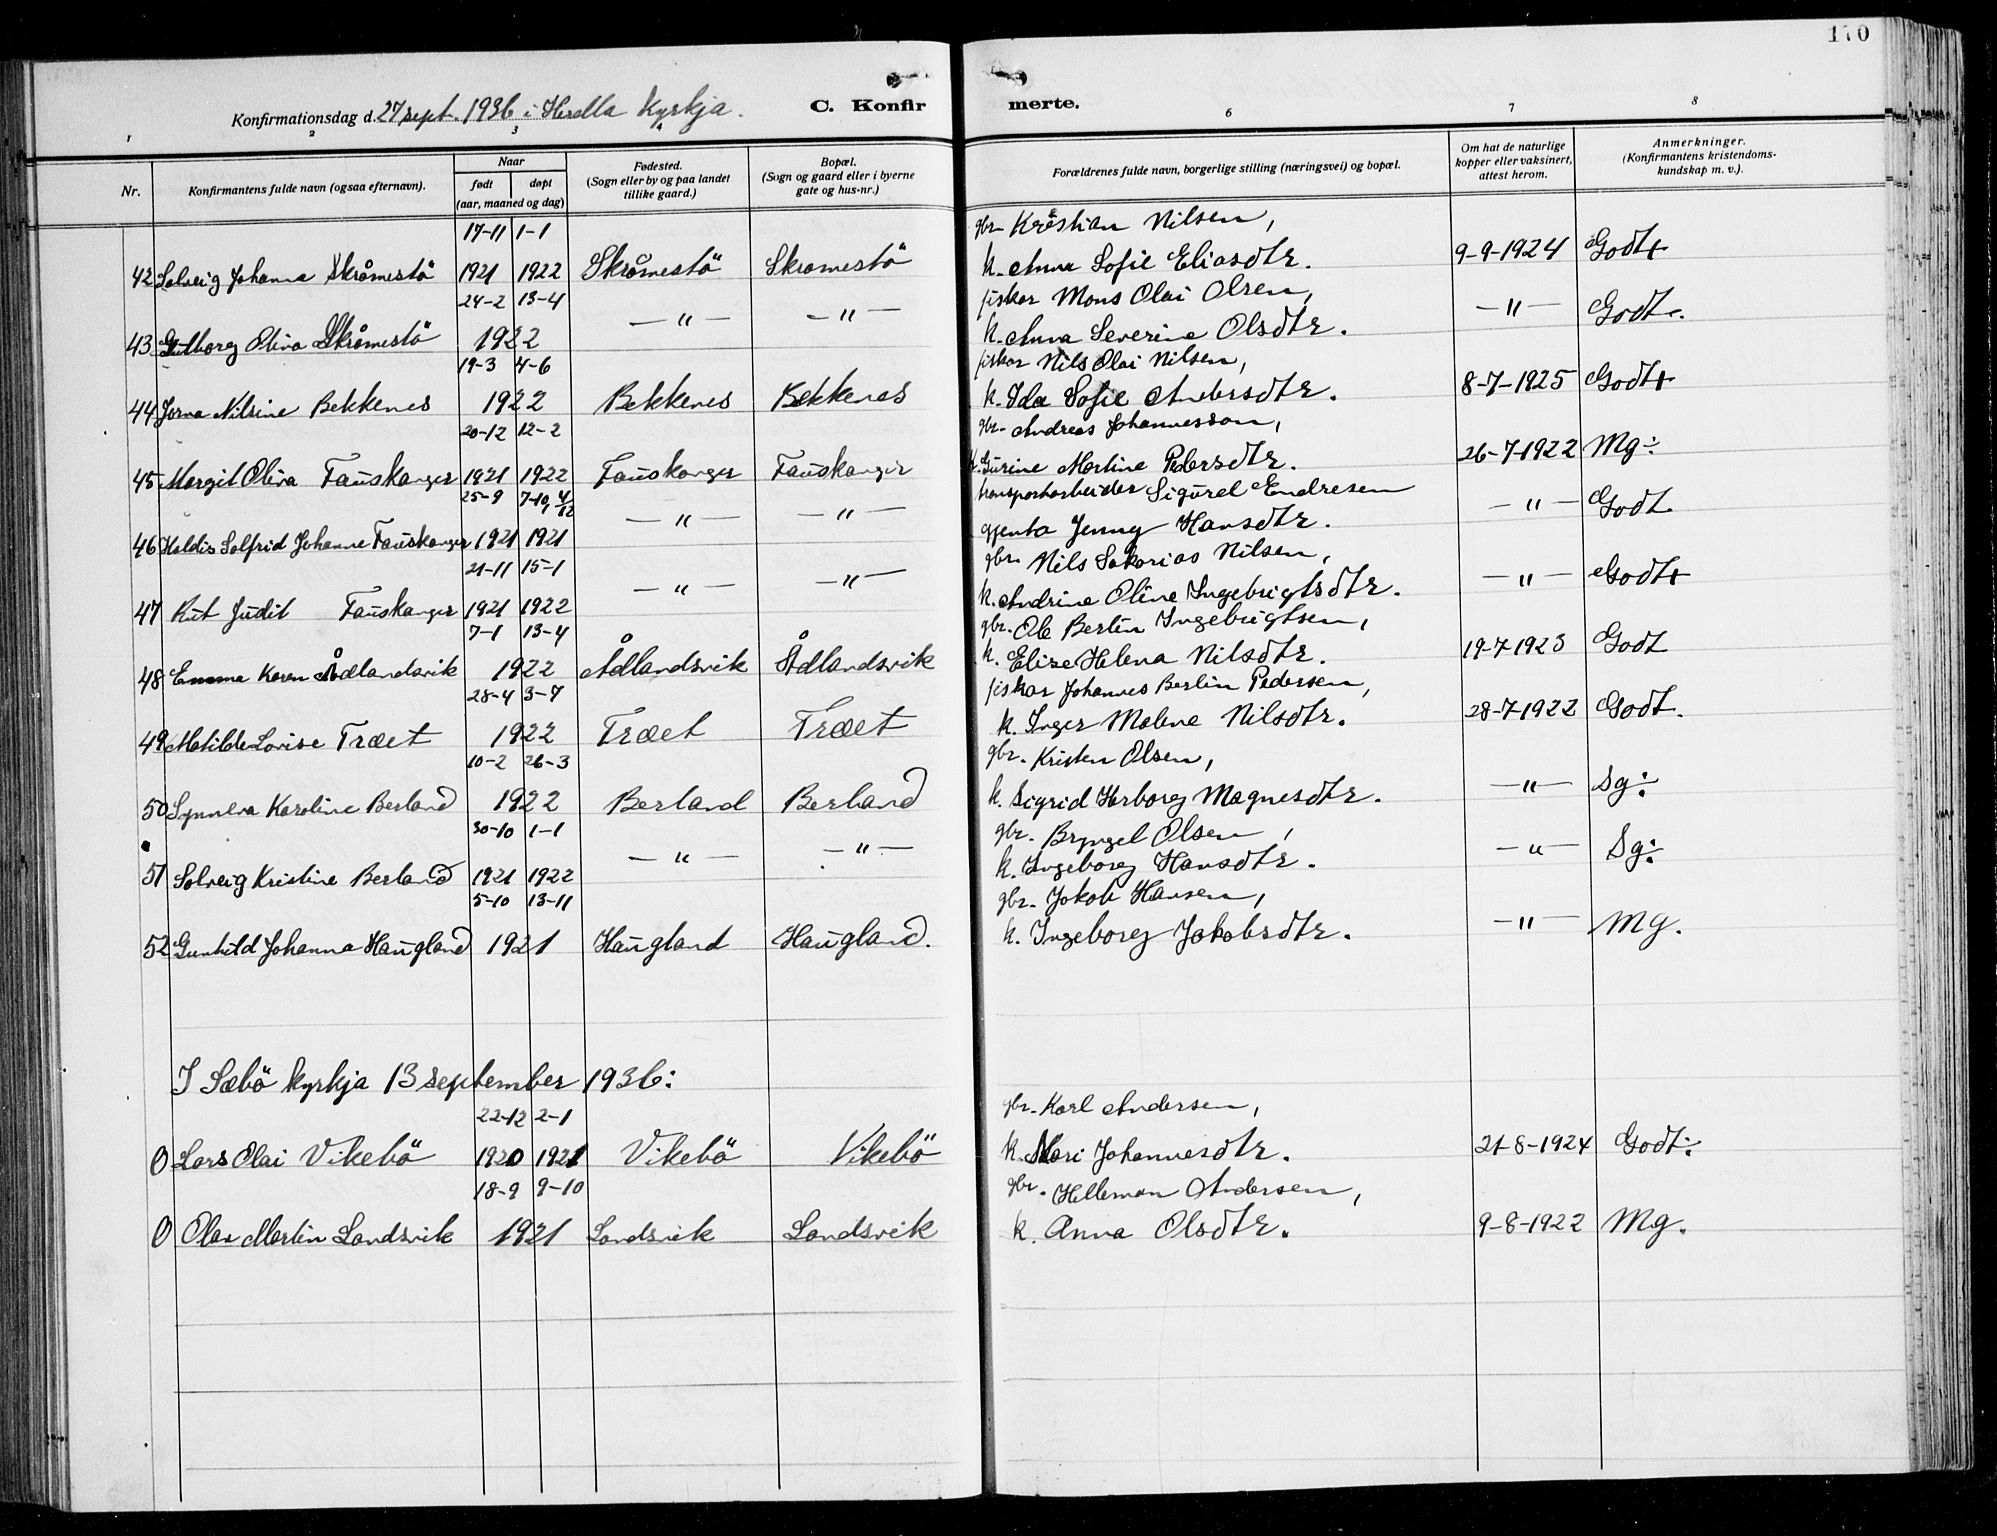 170
Konfirmationsdag d. 27 sept. 1936 i Herdla kyrkja.
C. Konfirmerte.
1 2 3 4 6 7 8
Nr.
Konfirmantens fulde navn (ogsaa efternavn).
Naar
født døpt
(aar, maaned og dag)
Fødested.
(Sogn eller by og paa landet
tillike gaard.)
Bopæl.
(Sogn og gaard eller i byerne
gate og hus-nr.)
Forældrenes fulde navn, borgerlige stilling (næringsvei) og bopæl.
Om hat de naturlige
kopper eller vaksinert,
attest herom.
Anmerkninger.
(Konfirmantens kristendoms-
kundskap m. v.).
17-11 1-1 gbr. Kristian Nilsen,
42 Solveig Johanna Skråmestö 1921 1922 Skråmestö Skramestö k. Anna Sofie Eliasdtr. 9-9-1924 Godt+
24-2 13-4 fiskar Mons Olai Olsen,
43 Gutborg Oliva Skråmestö 1922 -"- -"- k. Anna Severine Olsdtr. -"- Godt.
19-3 4-6 fiskar Nils Olai Nilsen,
44 Jorna Nilsine Bekkenes 1922 Bekkenes Bekkenes k. Ida Sofie Andersdtr. 8-7-1925 Godt+
20-12 12-2 gbr. Andreas Johannesson,
45 Margit Oliva Fauskanger 1921 1922 Fauskanger Fauskanger k. Gurine Martine Pedersdtr. 26-7-1922 Mg÷
25-9 7-10, 4/12 transportarbeider Sigurd Endresen
46 Haldis Solfrid Johanne Fauskanger 1921 1921 -"- -"- gjenta Jenny Hansdtr. -"- Godt.
21-11 15-1 gbr. Nils Sakarias Nilsen,
47 Rut Judit Fauskanger 1921 1922 -"- -"- k. Andrine Oline Ingebrigtsdtr. -"- Godt+
7-1 13-4 gbr. Ole Bertin Ingebrigtsen,
48 Emma Karen Ådlandsvik 1922 Ådlandsvik Ådlandsvik k. Elise Helena Nilsdtr. 19-7-1923 Godt
28-4 3-7 fiskar Johannes Berlin Pedersen,
49 Matilde Lovise Træet 1922 Træet Træet k. Inger Malene Nilsdtr. 28-7-1922 Godt.
10-2 26-3 gbr. Kristen Olsen,
50 Synneva Karoline Berland 1922 Berland Berland k. Sigrid Herborg Magnesdtr. -"- Sg÷
30-10 1-1 gbr. Bryngel Olsen,
51 Solveig Kristine Berland 1921 1922 -"- -"- k. Ingeborg Hansdtr. -"- Sg÷
5-10 13-11 gbr. Jakob Hansen,
52 Gunhild Johanna Haugland 1921 Haugland Haugland. k. Ingeborg Jakobsdtr. -"- Mg.
I Sæbö kyrkja 13 september 1936:
22-12 2-1 gbr. Karl Andersen,
0 Lars Olai Vikebö 1920 1921 Vikebö Vikebö k. Mari Johannesdtr. 21-8-1924 Godt÷
18-9 9-10 gbr. Helleman Andersen,
0 Olav Martin Landsvik 1921 Landsvik Landsvik k. Anna Olsdtr. 9-8-1922 Mg.